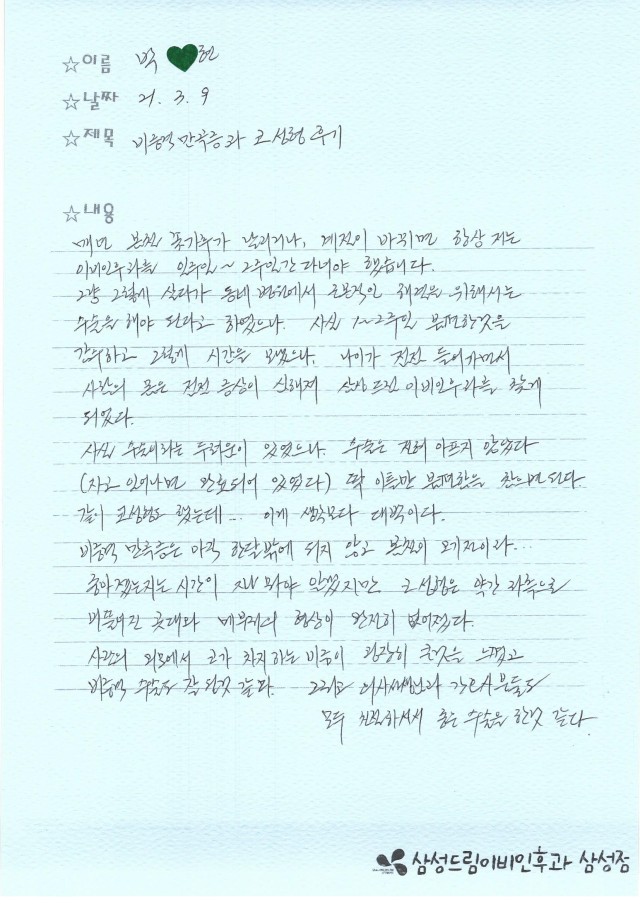 ☆이름 박 ♥현
☆날짜 21. 3. 9
☆제목 비중격 만곡증과 코성형 후기
☆내용
매년 봄철 꽃가루가 날리거나, 계절이 바뀌면 항상 저는
이비인후과를 일주일~2주일간 다녀야 했습니다.
그냥 그렇게 살다가 동네 병원에서 근본적인 해결을 위해서는
수술을 해야 된다고 하였으나. 사실 1~2주일 불편한것을
감수하고 그렇게 시간을 보냈으나. 나이가 점점 들어가면서
사람의 몸은 점점 증상이 심해져 삼성드림이비인후과를 찾게
되었다.
사실 수술이라는 두려움이 있었으나. 수술은 전혀 아프지 않았다
(자고 일어나면 완료되어 있었다) 딱 이틀만 불편함을 참으면 된다.
같이 코성형도 했는데... 이게 생각보다 대박이다.
비중격 만곡증은 아직 한달밖에 되지 않고 봄철이 오기전이라...
좋아졌는지는 시간이 지나 봐야 알겠지만 코성형은 약간 좌측으로
비뚤어진 콧대와 메부리의 형상이 완전히 없어졌다.
사람의 외모에서 코가 차지하는 비중이 굉장히 큰것을 느꼈고
비중격 수술도 잘 된것 같다. 그리고 의사선생님과 간호사분들도
모두 친절하셔서 좋은 수술을 한것 같다.
삼성드림이비인후과 삼성점